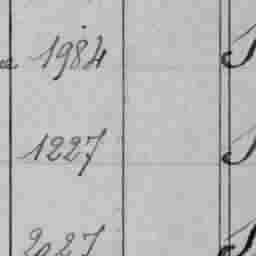 1984
1227
2027